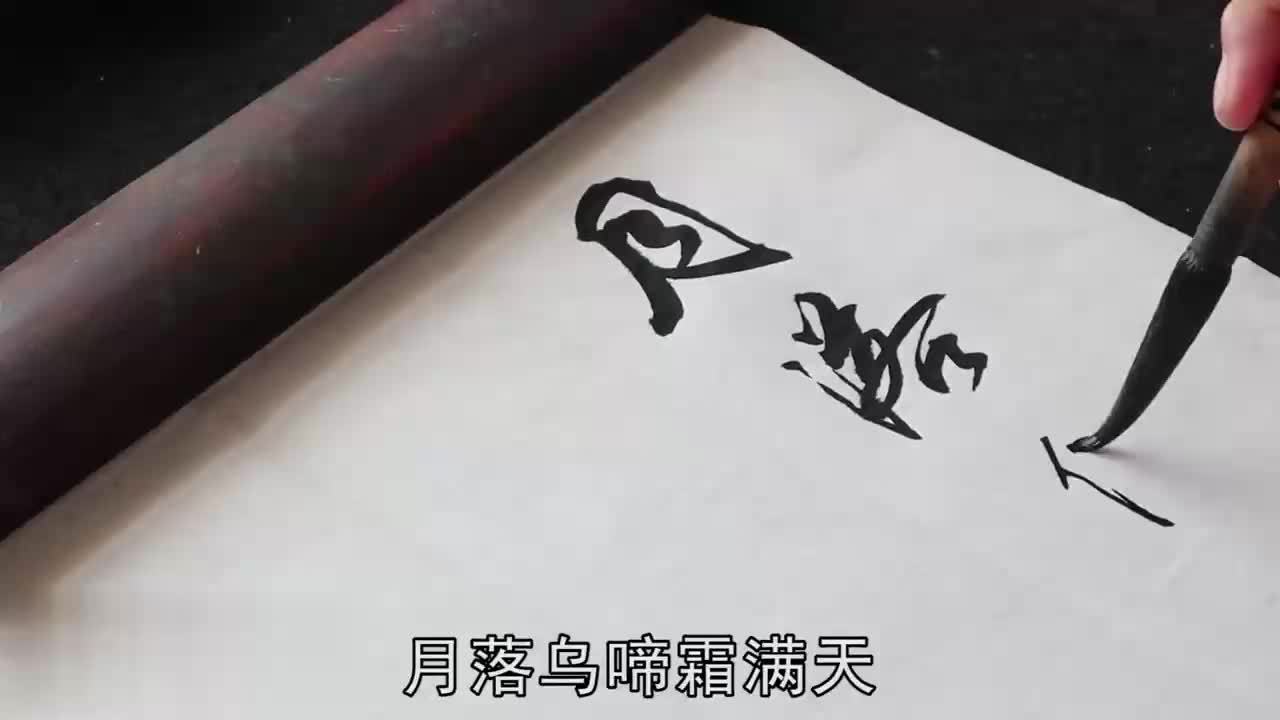 月落
月落乌啼霜满天